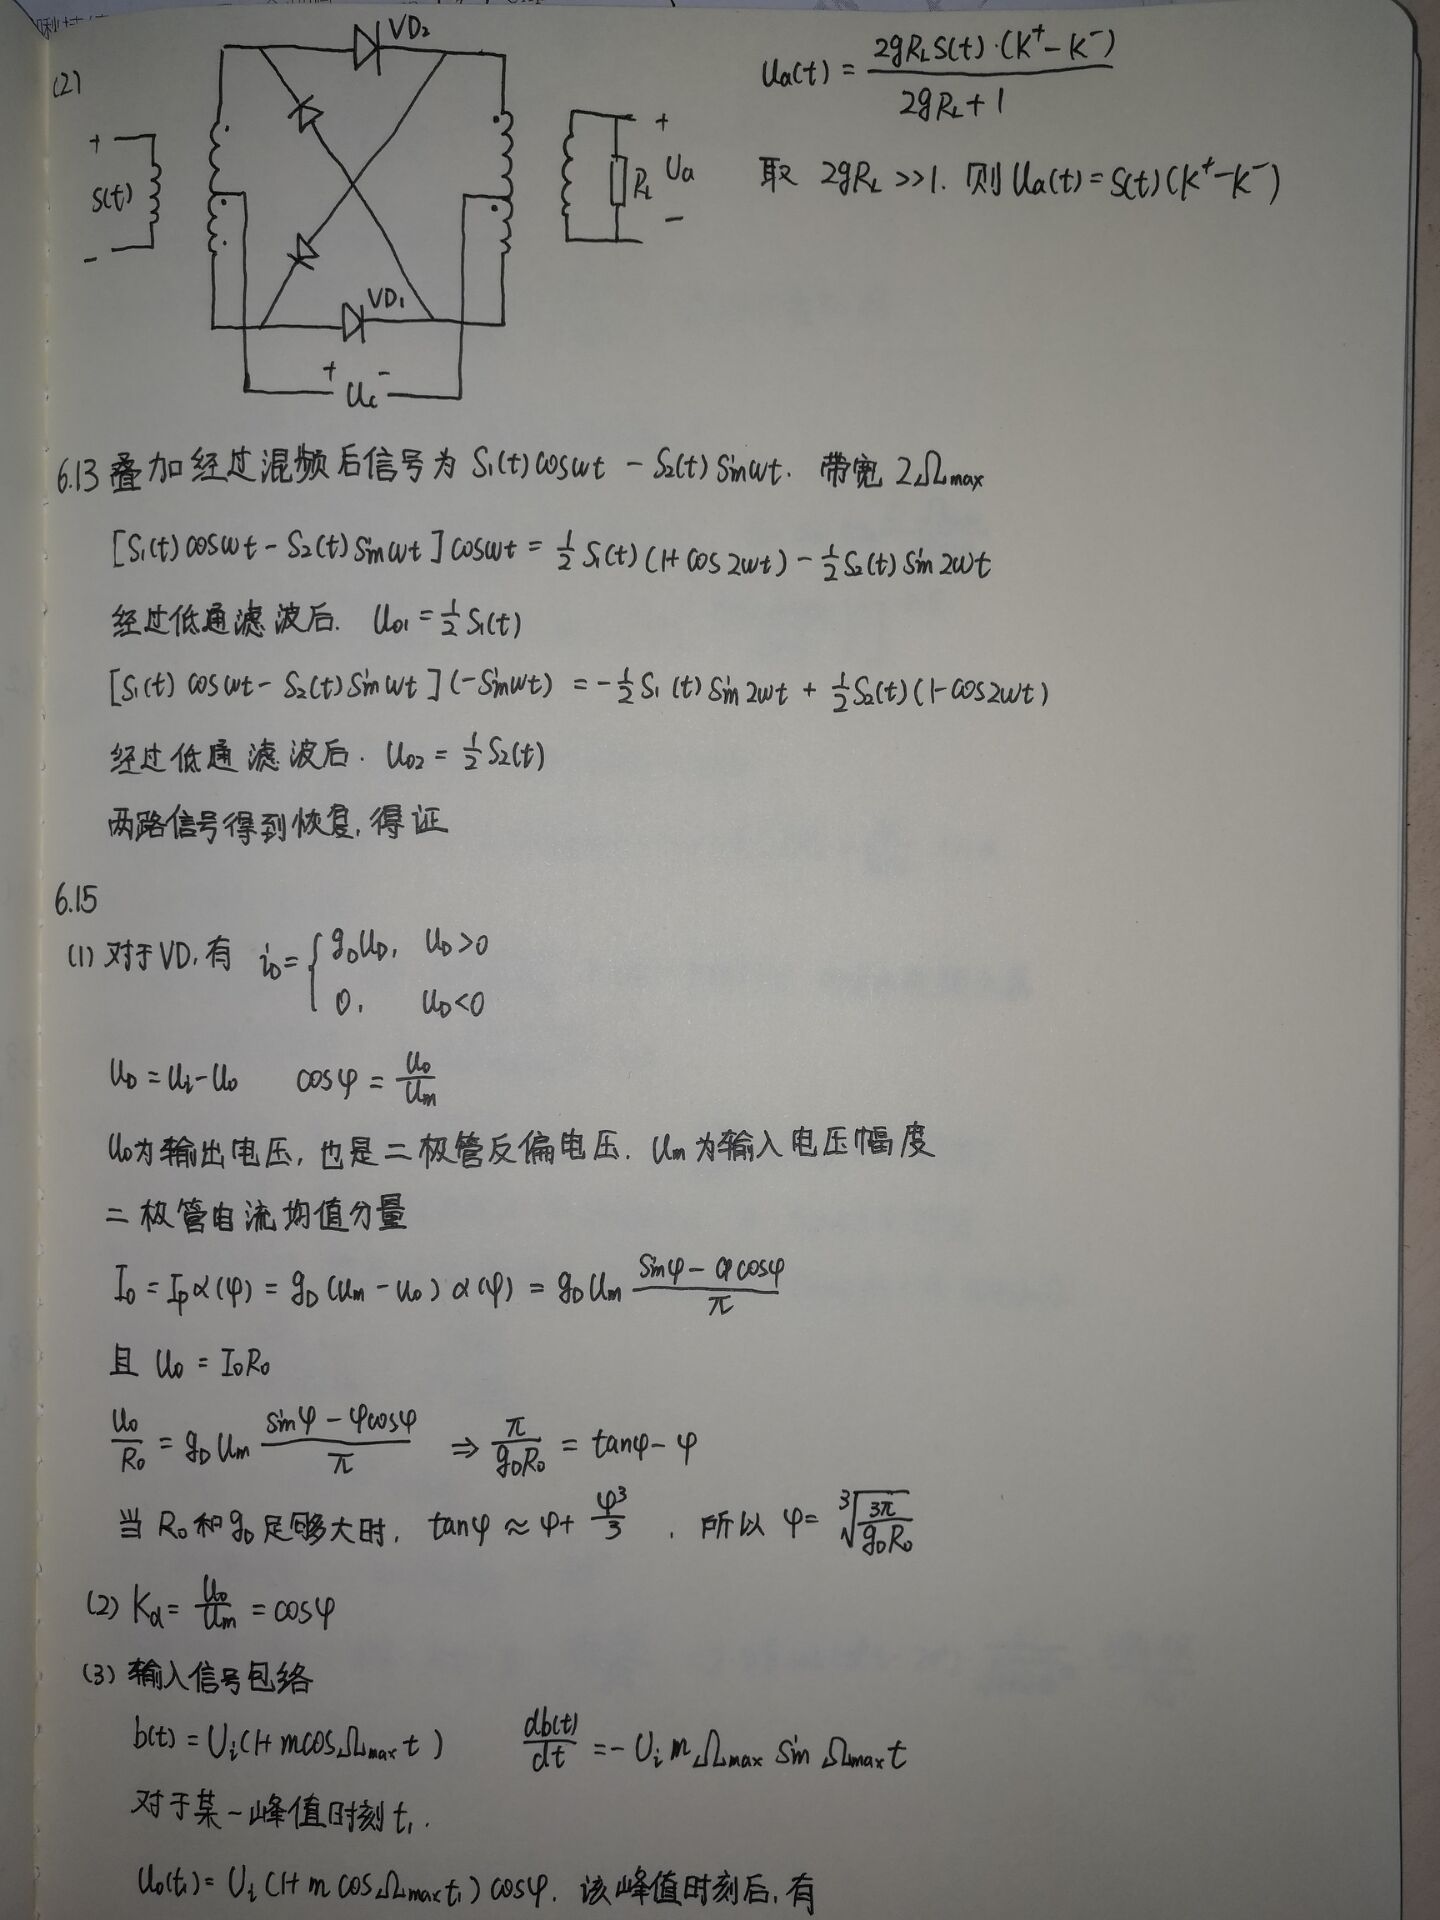 (2)
VD₂
+
S(t)
-
+
R_L
Ua
-
VD₁
+ Uc -
Ua(t) = \frac{2gR_L S(t)·(K⁺-K⁻)}{2gR_L+1}
取 2gR_L >>1. 则 Ua(t) = S(t)(K⁺-K⁻)
6.13 叠加经过混频后信号为 S₁(t)cosωt - S₂(t)sinωt. 带宽 2Ωmax
[S₁(t)cosωt - S₂(t)sinωt]cosωt = ½S₁(t)(1+cos2ωt) - ½S₂(t)sin2ωt
经过低通滤波后. U₀₁ = ½S₁(t)
[S₁(t)cosωt - S₂(t)sinωt](-sinωt) = -½S₁(t)sin2ωt + ½S₂(t)(1-cos2ωt)
经过低通滤波后. U₀₂ = ½S₂(t)
两路信号得到恢复, 得证
6.15
(1) 对于VD, 有 i_D = { g_D U_D, U_D>0
0, U_D<0
U_D = Ui - Uo cosφ = \frac{Uo}{Um}
Uo为输出电压, 也是二极管反偏电压. Um为输入电压幅度
二极管电流均值分量
I₀ = Ipα(φ) = g_D(Um-Uo)α(φ) = g_D Um \frac{sinφ-φcosφ}{π}
且 Uo = I₀R₀
\frac{Uo}{R₀} = g_D Um \frac{sinφ-φcosφ}{π} ⇒ \frac{π}{g_D R₀} = tanφ-φ
当 R₀和g_D足够大时, tanφ ≈ φ+\frac{φ³}{3} , 所以 φ = \sqrt[3]{\frac{3π}{g_D R₀}}
(2) Kd = \frac{Uo}{Um} = cosφ
(3) 输入信号包络
b(t) = Ui(1+mcosΩmax t) \frac{db(t)}{dt} = -Ui mΩmax sinΩmax t
对于某一峰值时刻t₁.
Uo(t₁) = Ui(1+mcosΩmax t₁)cosφ. 该峰值时刻后, 有